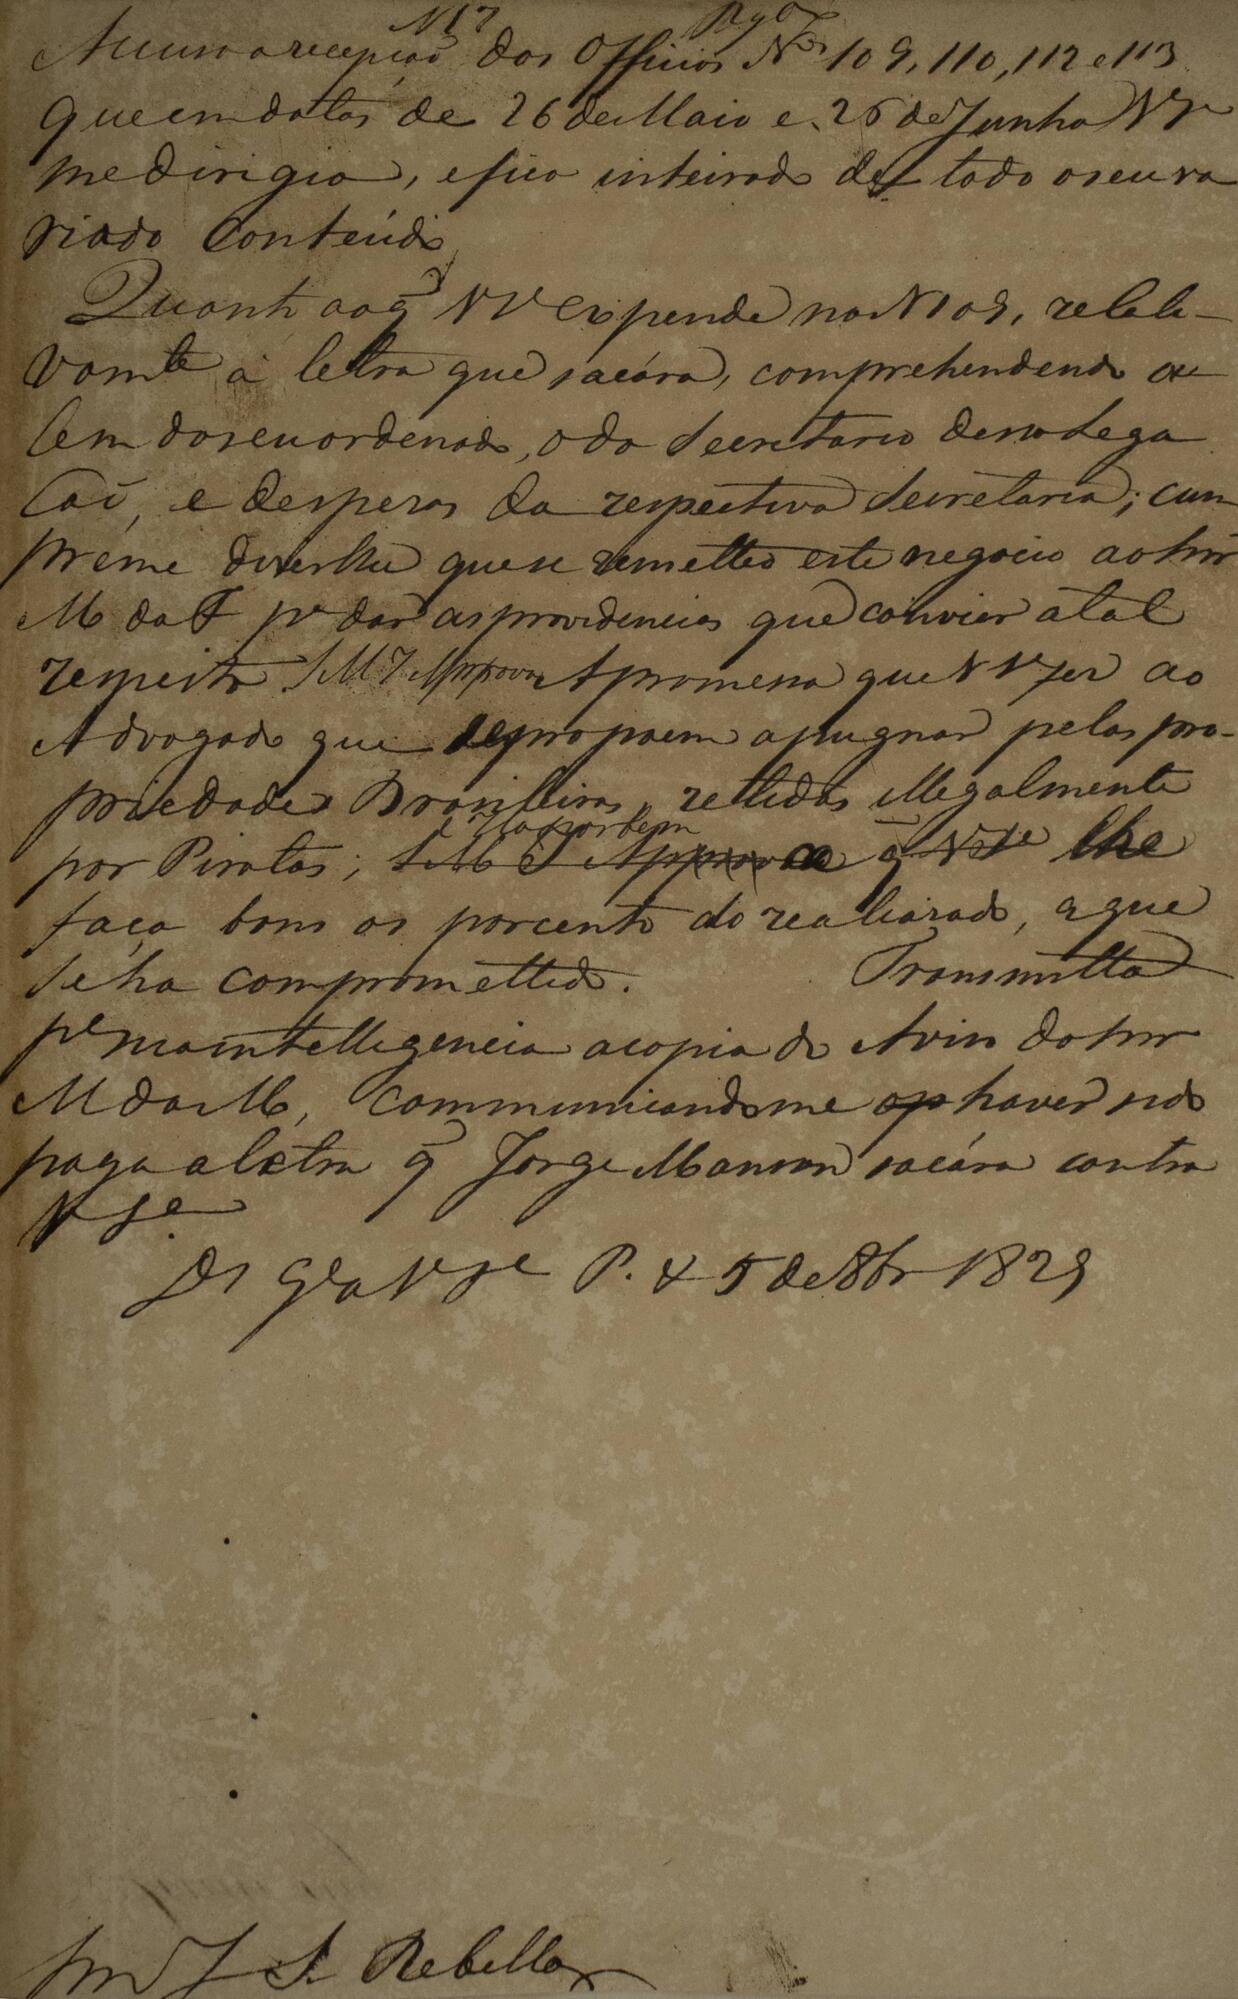 N 17 Rgo
Accuso a recepção dos Officios Nos 109, 110, 112 e 113
que em datas de 26 de Maio e 26 de Junho V Sa
me dirigio, e fico inteirado de todo o seu va
riado Conteúdo
Quanto ao q̃ V Sa expende no N 109, relati-
vamte à letra que sacára, comprehendendo a
lem do seu ordenado, o do Secretario dessa Lega
ção, e despezas da respectiva Secretaria; cum
pre me dizer lhe que se remetteo este negocio ao Snr
M da F pa dar as providencias que convier a tal
respeito. S M I Approva A promessa que V Sa fez ao
Advogado que se propoem a pugnar pelas pro-
priedades Brasileiras, retidas illegalmente
por Piratas; S M I Approva q̃ V Sa lhe
e tambem
faça bons os por cento do realisado, a que
se ha compromettido. Transmitto
pa sua intelligencia a copia do Aviso do Snr
M da M, communicando me haver sido
paga a letra q̃ Jorge Manson sacára contra
V Sa
Ds Ge a V Sa P. 5 de 8br 1829
Snr J S. Rebello